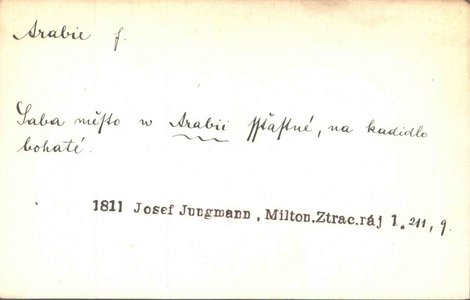 Arabie f.
Saba město w Arabii šťastné, na kadidlo
bohaté.
1811 Josef Jungmann, Milton.Ztrac.ráj 1. 211, 9.